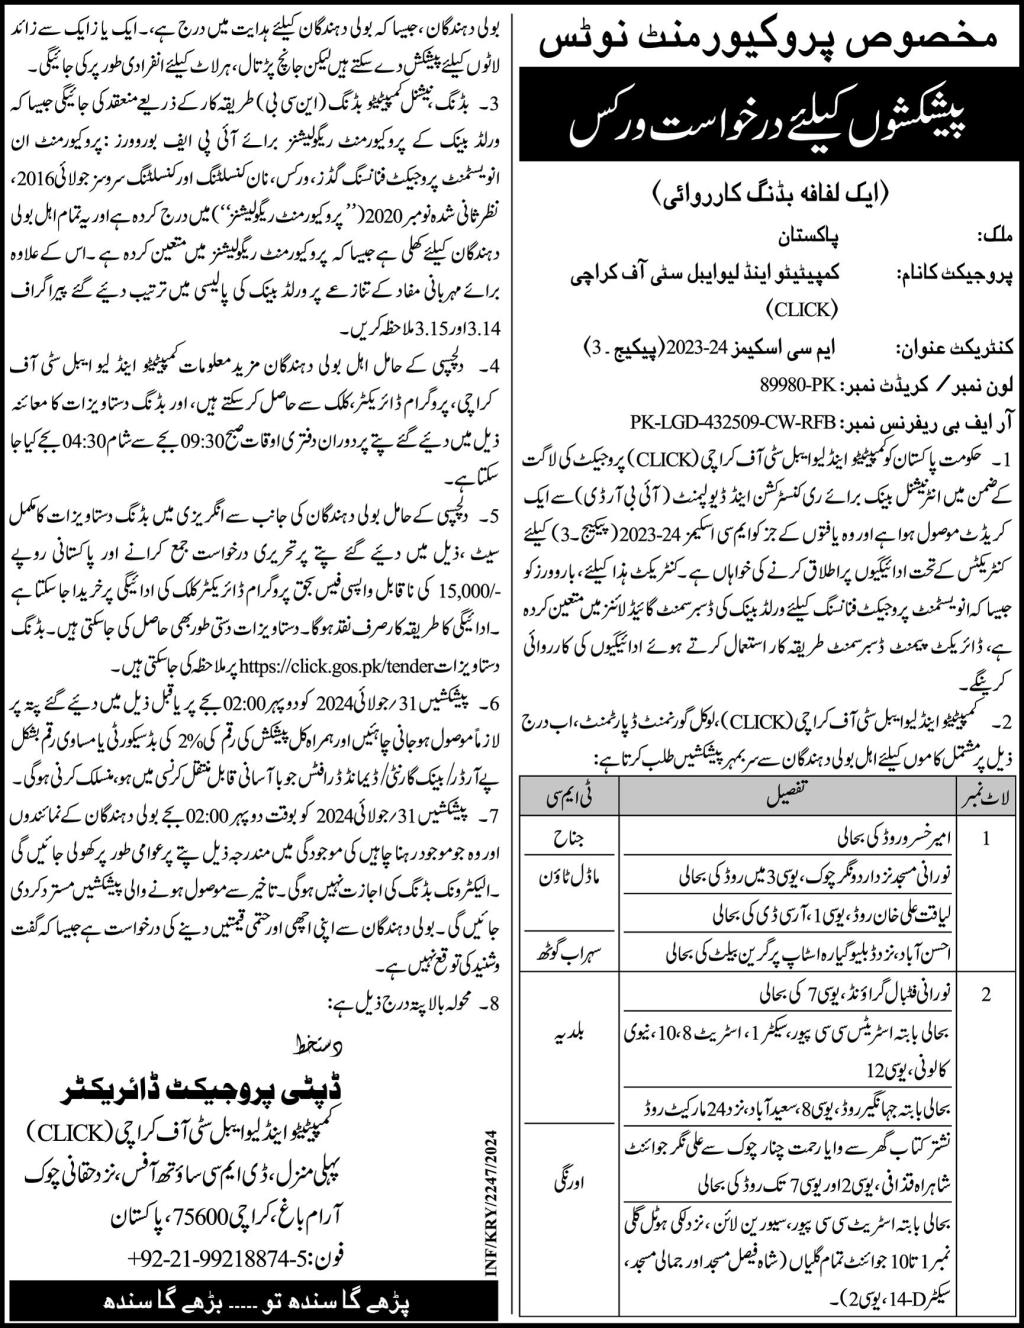 مخصوص پروکیورمنٹ نوٹس
پیشکشوں کیلئے درخواست ورکس
(ایک لفافہ بڈنگ کارروائی)
ملک: پاکستان
پروجیکٹ کا نام: کمپیٹیٹو اینڈ لیوایبل سٹی آف کراچی
(CLICK)
کنٹریکٹ عنوان: ایم سی اسکیمز 24-2023 (پیکیج۔3)
لون نمبر/ کریڈٹ نمبر: 89980-PK
آر ایف بی ریفرنس نمبر: PK-LGD-432509-CW-RFB
1۔ حکومت پاکستان کو کمپیٹیٹو اینڈ لیوایبل سٹی آف کراچی (CLICK) پروجیکٹ کی لاگت
کے ضمن میں انٹرنیشنل بینک برائے ری کنسٹرکشن اینڈ ڈیولپمنٹ (آئی بی آر ڈی) سے ایک
کریڈٹ موصول ہوا ہے اور وہ یافتوں کے جز کو ایم سی اسکیمز 24-2023 (پیکیج۔3) کیلئے
کنٹریکٹس کے تحت ادائیگیوں پر اطلاق کرنے کی خواہاں ہے۔ کنٹریکٹ ہذا کیلئے، باروورز کو
جیسا کہ انویسٹمنٹ پروجیکٹ فنانسنگ کیلئے ورلڈ بینک کی ڈسبرسمنٹ گائیڈ لائنز میں متعین کردہ
ہے، ڈائریکٹ پیمنٹ ڈسبرسمنٹ طریقہ کار استعمال کرتے ہوئے ادائیگیوں کی کارروائی
کرینگے۔
2۔ کمپیٹیٹو اینڈ لیوایبل سٹی آف کراچی (CLICK)، لوکل گورنمنٹ ڈپارٹمنٹ، اب درج
ذیل پر مشتمل کاموں کیلئے اہل بولی دہندگان سے سربمہر پیشکشیں طلب کرتا ہے:
لاٹ نمبر تفصیل ٹی ایم سی
1 امیر خسرو روڈ کی بحالی جناح
نورانی مسجد نزد داردونگر چوک، یوسی 3 میں روڈ کی بحالی ماڈل ٹاؤن
لیاقت علی خان روڈ، یوسی 1، آر سی ڈی کی بحالی
احسن آباد، نزد ڈبلیو گیارہ اسٹاپ پر گرین بیلٹ کی بحالی سہراب گوٹھ
2 نورانی فٹبال گراؤنڈ، یوسی 7 کی بحالی بلدیہ
بحالی بابتہ اسٹریٹس سی سی پیور، سیکٹر 1، اسٹریٹ 8، 10، نیوی
کالونی، یوسی 12
بحالی بابتہ جہانگیر روڈ، یوسی 8، سعید آباد، نزد 24 مارکیٹ روڈ
نشتر کتاب گھر سے وایا رحمت چنار چوک سے علی نگر جوائنٹ اورنگی
شاہراہ قذافی، یوسی 2 اور یوسی 7 تک روڈ کی بحالی
بحالی بابتہ اسٹریٹ سی سی پیور، سیورین لائن، نزد لکی ہوٹل گلی
نمبر 1 تا 10 جوائنٹ تمام گلیاں (شاہ فیصل مسجد اور جمالی مسجد،
سیکٹر 14-D، یوسی 2)۔
بولی دہندگان، جیسا کہ بولی دہندگان کیلئے ہدایت میں درج ہے،۔ ایک یا زایک سے زائد
لاٹوں کیلئے پیشکش دے سکتے ہیں لیکن جانچ پڑتال، ہر لاٹ کیلئے انفرادی طور پر کی جائیگی۔
3۔ بڈنگ نیشنل کمپیٹیٹو بڈنگ (این سی بی) طریقہ کار کے ذریعے منعقد کی جائیگی جیسا کہ
ورلڈ بینک کے پروکیورمنٹ ریگولیشنز برائے آئی پی ایف بوروورز: پروکیورمنٹ ان
انویسٹمنٹ پروجیکٹ فنانسنگ گڈز، ورکس، نان کنسلٹنگ اور کنسلٹنگ سروسز جولائی 2016،
نظر ثانی شدہ نومبر 2020 (''پروکیورمنٹ ریگولیشنز'') میں درج کردہ ہے اور یہ تمام اہل بولی
دہندگان کیلئے کھلی ہے جیسا کہ پروکیورمنٹ ریگولیشنز میں متعین کردہ ہے۔ اس کے علاوہ
برائے مہربانی مفاد کے تنازعے پر ورلڈ بینک کی پالیسی میں ترتیب دیئے گئے پیراگراف
3.14 اور 3.15 ملاحظہ کریں۔
4۔ دلچسپی کے حامل اہل بولی دہندگان مزید معلومات کمپیٹیٹو اینڈ لیوایبل سٹی آف
کراچی، پروگرام ڈائریکٹر، کلک سے حاصل کر سکتے ہیں، اور بڈنگ دستاویزات کا معائنہ
ذیل میں دیئے گئے پتے پر دوران دفتری اوقات صبح 09:30 بجے سے شام 04:30 بجے کیا جا
سکتا ہے۔
5۔ دلچسپی کے حامل بولی دہندگان کی جانب سے انگریزی میں بڈنگ دستاویزات کا مکمل
سیٹ، ذیل میں دیئے گئے پتے پر تحریری درخواست جمع کرانے اور پاکستانی روپے
15,000/- کی ناقابل واپسی فیس بحق پروگرام ڈائریکٹر کلک کی ادائیگی پر خریدا جا سکتا ہے
۔ ادائیگی کا طریقہ کار صرف نقد ہوگا۔ دستاویزات دستی طور بھی حاصل کی جا سکتی ہیں۔ بڈنگ
دستاویزات https://click.gos.pk/tender پر ملاحظہ کی جا سکتی ہیں۔
6۔ پیشکشیں 31/جولائی 2024 کو دوپہر 02:00 بجے پر یا قبل ذیل میں دیئے گئے پتہ پر
لازماً موصول ہوجانی چاہئیں اور ہمراہ کل پیشکش کی رقم کی 2% کی بڈ سیکورٹی یا مساوی رقم بشکل
پے آرڈر/ بینک گارنٹی/ ڈیمانڈ ڈرافٹس جو با آسانی قابل منتقل کرنسی میں ہو، منسلک کرنی ہوگی۔
7۔ پیشکشیں 31/جولائی 2024 کو بوقت دوپہر 02:00 بجے بولی دہندگان کے نمائندوں
اور وہ جو موجود رہنا چاہیں کی موجودگی میں مندرجہ ذیل پتے پر عوامی طور پر کھولی جائیں گی
۔ الیکٹرونک بڈنگ کی اجازت نہیں ہوگی۔ تاخیر سے موصول ہونے والی پیشکشیں مسترد کردی
جائیں گی۔ بولی دہندگان سے اپنی اچھی اور حتمی قیمتیں دینے کی درخواست ہے جیسا کہ گفت
و شنید کی توقع نہیں ہے۔
8۔ محولہ بالا پتہ درج ذیل ہے:
دستخط
ڈپٹی پروجیکٹ ڈائریکٹر
کمپیٹیٹو اینڈ لیوایبل سٹی آف کراچی (CLICK)
پہلی منزل، ڈی ایم سی ساؤتھ آفس، نزد حقانی چوک
آرام باغ، کراچی 75600، پاکستان
فون: +92-21-99218874-5
INF/KRY/2247/2024
پڑھے گا سندھ تو ..... بڑھے گا سندھ